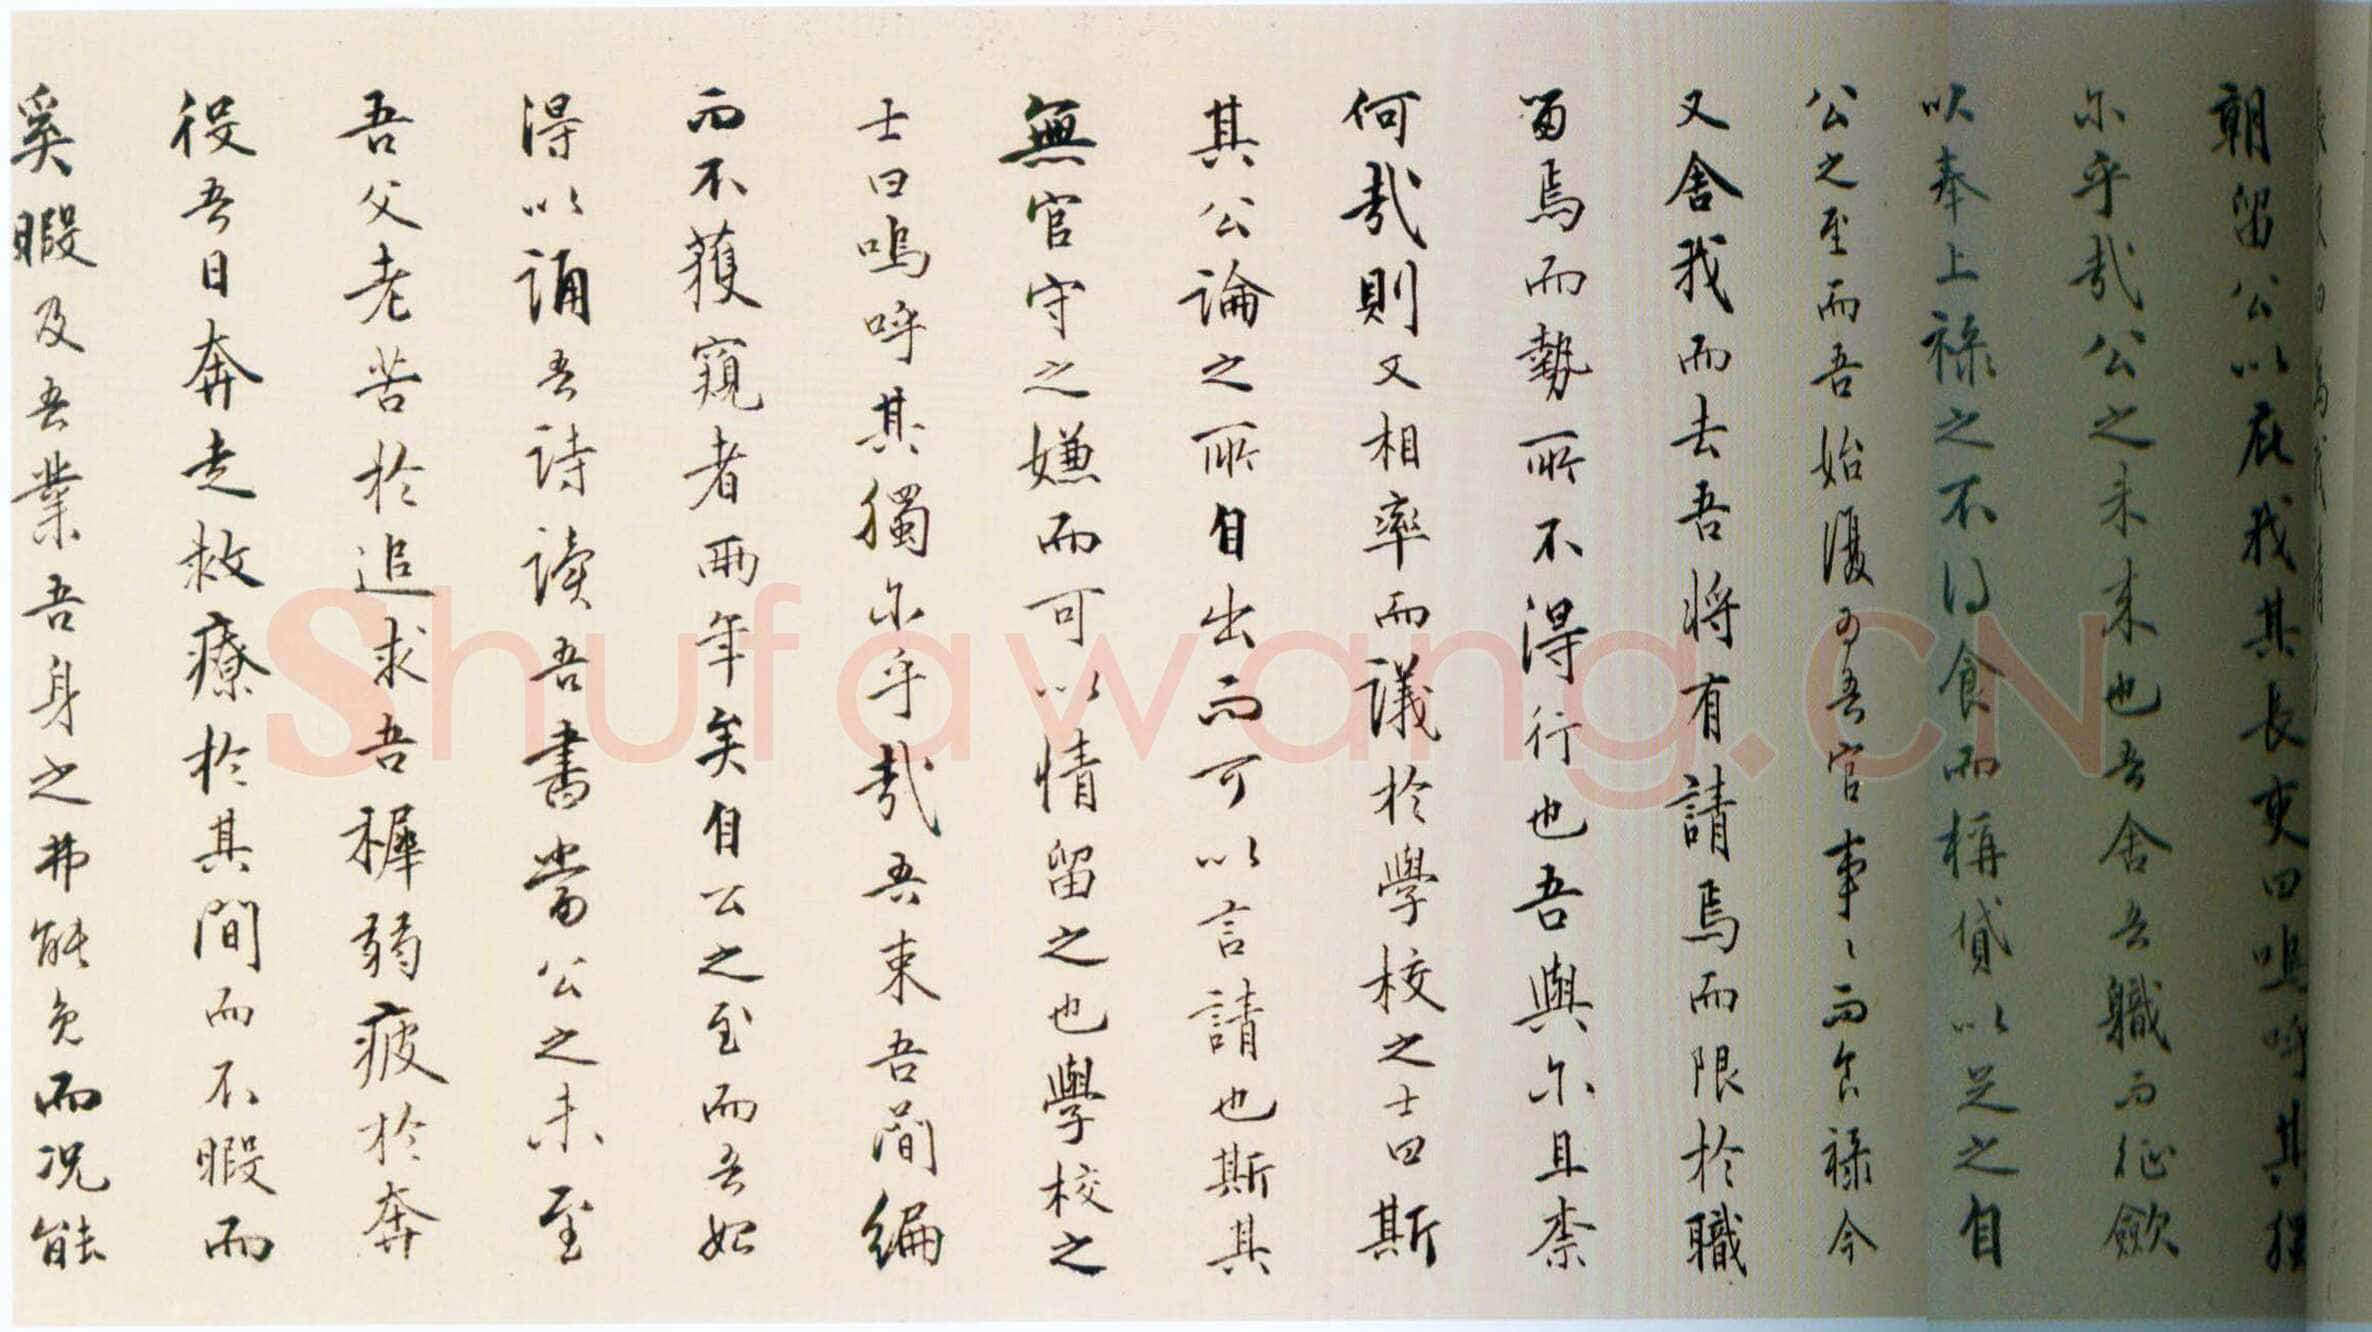 朝留公以庇我其長吏曰嗚呼其獨
尔乎哉公之未来也吾舍吾職而征歛
以奉上禄之不得食而稱貸以足之自
公之至而吾始復為吾官事〻而食禄今
又舍我而去吾将有請焉而限於職
留焉而勢所不得行也吾與尔且柰
何哉則又相率而議於學校之士曰斯
其公論之所自出而可以言請也斯其
無官守之嫌而可以情留之也學校之
士曰嗚呼其獨尔乎哉吾束吾簡編
而不獲窺者兩年矣自公之至而吾始
得以誦吾詩讀吾書當公之未至
吾父老苦於追求吾稺弱疲於奔
役吾日奔走救療於其間而不暇而
奚暇及吾業吾身之弗能免而况能
Shufawang.CN